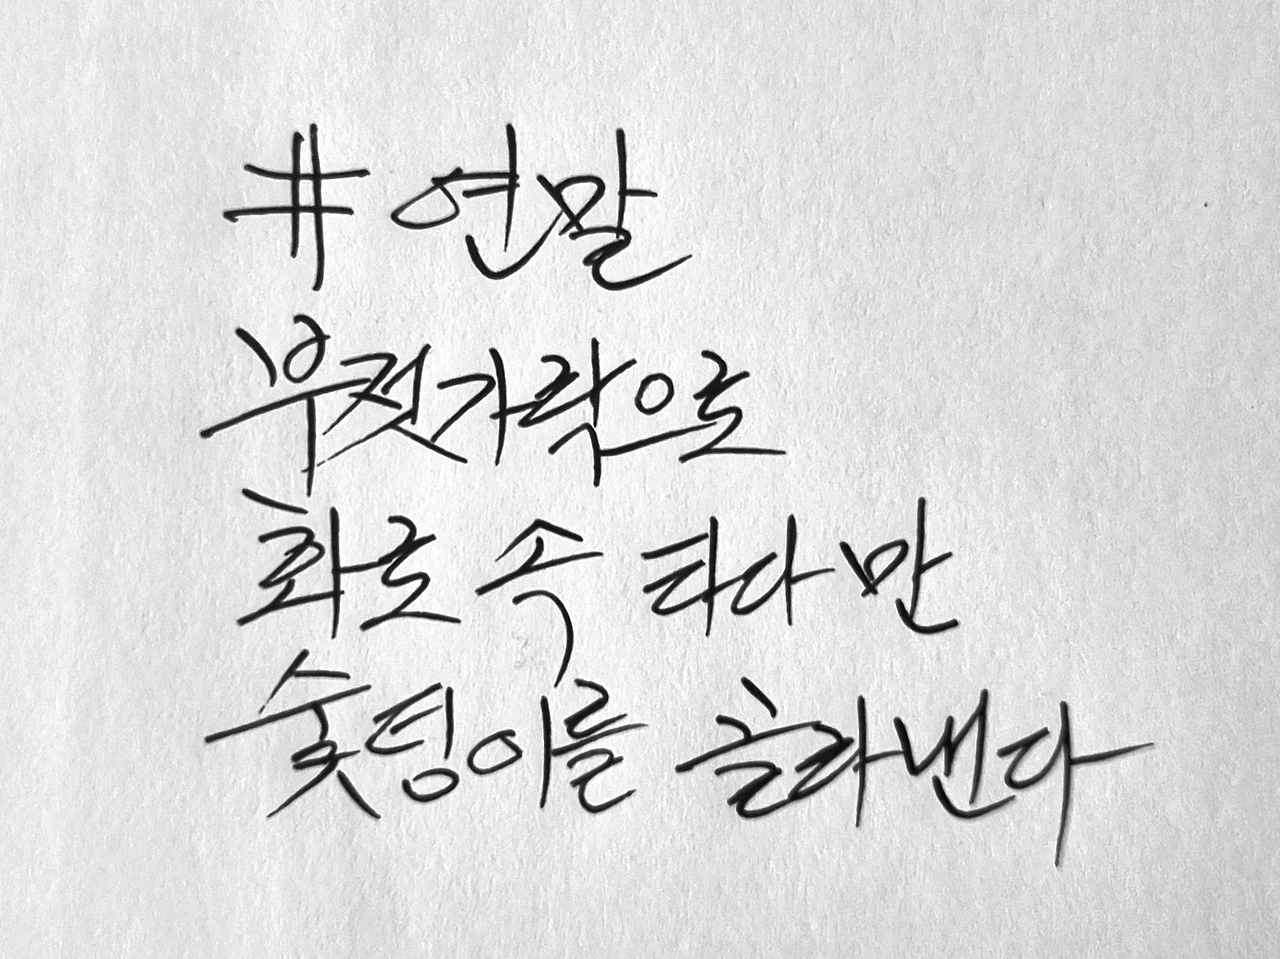 # 연말
부젓가락으로
화로 속 타다 만
숯덩이를 골라낸다